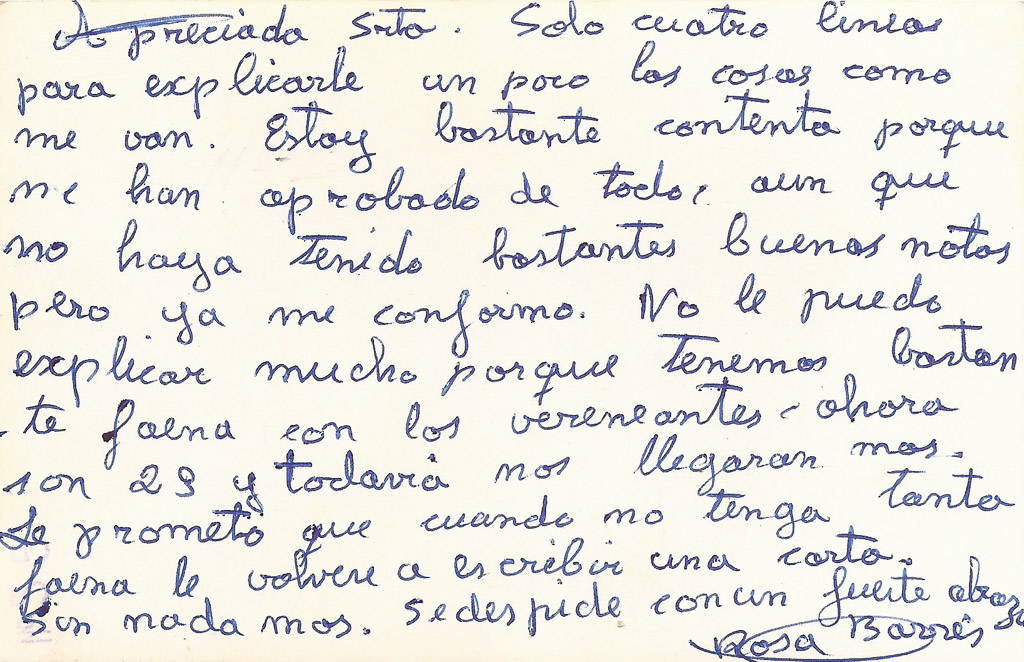 Apreciada Srta. Solo cuatro lineas
para explicarle un poco las cosas como
me van. Estoy bastante contenta porque
me han aprobado de todo, aun que
no haya tenido bastantes buenas notas
pero ya me conformo. No le puedo
explicar mucho porque tenemos bastan
te faena con los vereneantes, ahora
son 29 y todavia nos llegaran mas.
Le prometo que cuando no tenga tanta
faena le volvere a escribir una carta.
Sin nada mas. Se despide con un fuerte abrazo
su
Rosa Barrés